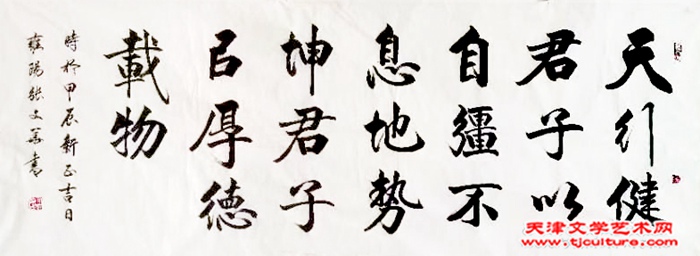 天行健
君子以
自彊不
息地勢
坤君子
㠯厚德
載物
時於甲辰新正吉日
雍陽張文善書
天津文学艺术网
www.tjculture.com